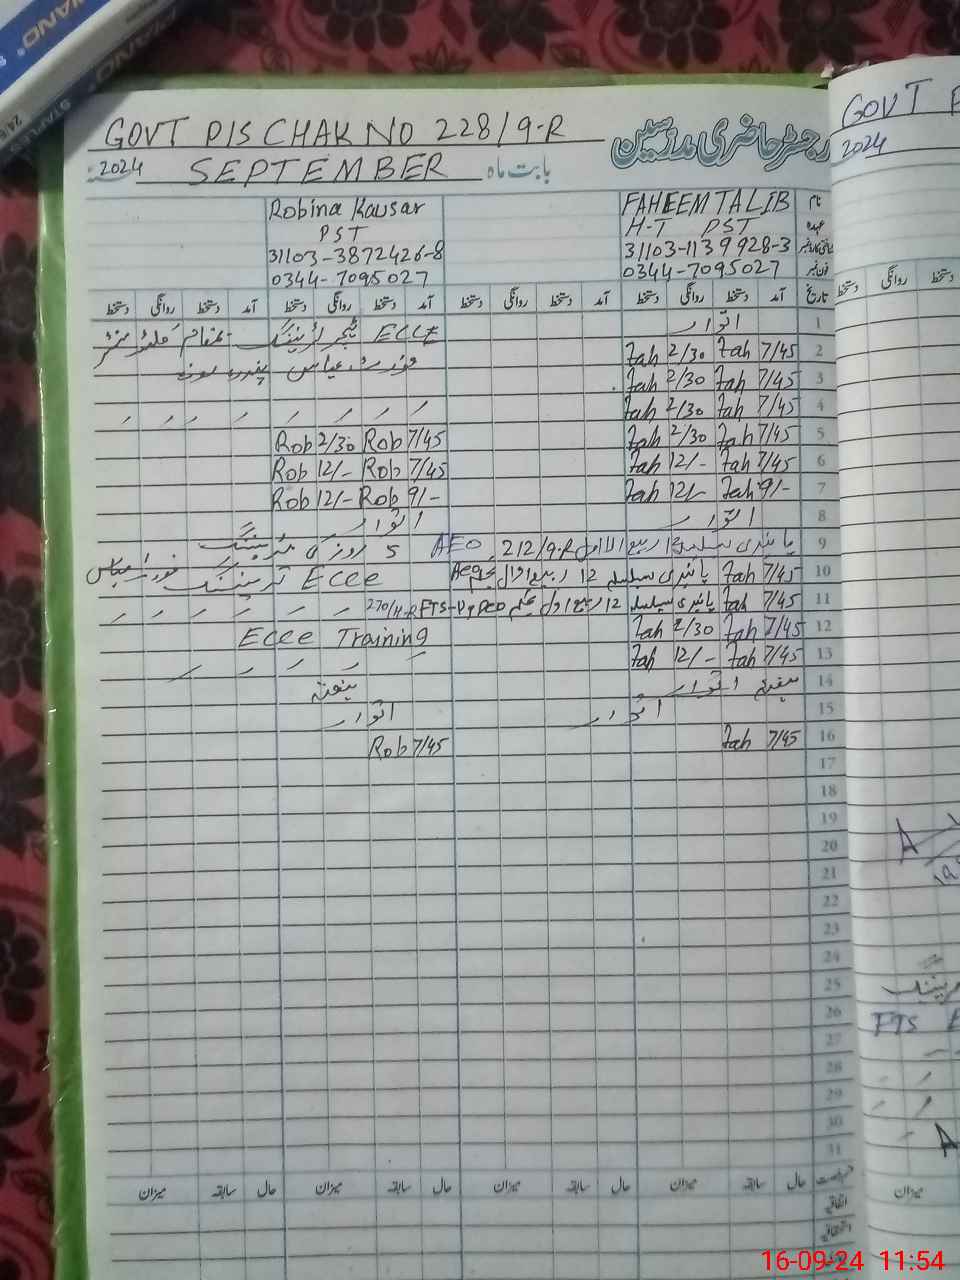 GOVT P/S CHAK NO 228/9-R
رجسٹر حاضری مدرسین
2024 SEPTEMBER بابت ماہ
نام FAHEEM TALIB Robina Kausar
عہدہ H-T PST PST
31103-1139928-3 31103-3872426-8
فون نمبر 0344-7095027 0344-7095027
تاریخ آمد دستخط روانگی دستخط آمد دستخط روانگی دستخط آمد دستخط روانگی دستخط آمد دستخط روانگی دستخط
1 اتوار ECCE ٹیچر ٹریننگ بمقام
2 7/45 Fah 2/30 Fah فورٹ عباس
3 7/45 Fah 2/30 Fah
4 7/45 Fah 2/30 Fah
5 7/45 Fah 2/30 Fah 7/45 Rob 2/30 Rob
6 7/45 Fah 12/- Fah 7/45 Rob 12/- Rob
7 9/- Fah 12/- Fah 9/- Rob 12/- Rob
8 اتوار اتوار
9 پابندی سلسلہ 12 ربیع الاول 212/9-R AEO 5 روزہ ٹریننگ
10 7/45 Fah پابندی سلسلہ 12 ربیع اول AEO Ecce ٹریننگ فورٹ عباس
11 7/45 Fah پابندی سلسلہ 12 ربیع اول 270/H-R FTS
12 7/45 Fah 2/30 Fah Ecce Training
13 7/45 Fah 12/- Fah
14 ہفتہ اتوار ہفتہ
15 اتوار اتوار
16 7/45 Fah 7/45 Rob
17
18
19
20
21
22
23
24
25
26
27
28
29
30
31
حال سابقہ میزان حال سابقہ میزان حال سابقہ میزان حال سابقہ میزان
اتفاقیہ
GOVT P
2024
دستخط روانگی دستخط
A
FTS
A
میزان
16-09-24 11:54